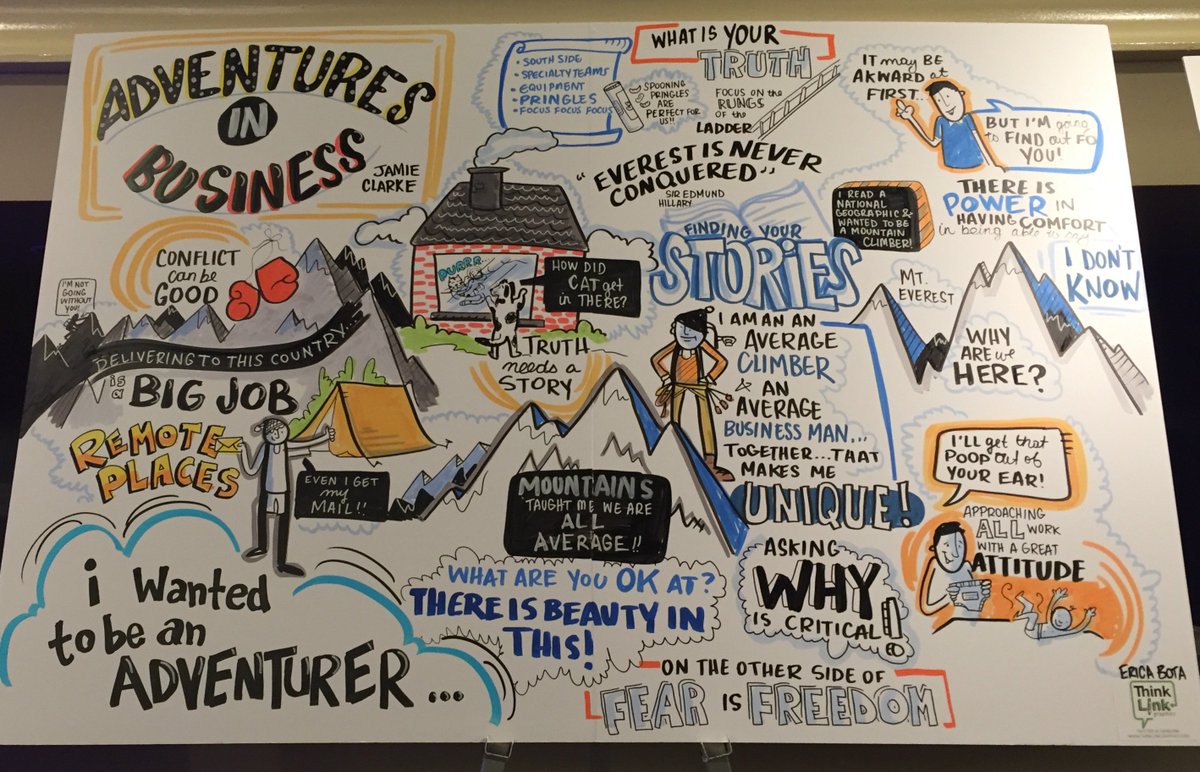 ADVENTURES
IN
BUSINESS
JAMIE
CLARKE
• SOUTH SIDE
• SPECIALTY TEAMS
• EQUIPMENT
• PRINGLES
• FOCUS FOCUS FOCUS
SPOONING
PRINGLES
ARE
PERFECT FOR
US!!
WHAT IS YOUR
TRUTH
FOCUS ON THE
RUNGS
OF the
LADDER
"EVEREST IS NEVER
CONQUERED"
SIR EDMUND
HILLARY
IT may BE
AKWARD at
FIRST...
BUT I'M going
to FIND out FO
YOU!
I READ A
NATIONAL
GEOGRAPHIC &
WANTED TO BE
A MOUNTAIN
CLIMBER!
THERE IS
POWER IN
HAVING COMFORT
in being able to say
I DON'T
KNOW
CONFLICT
can be
GOOD
I'M NOT
GOING WITHOUT
YOU!
DELIVERING TO THIS COUNTRY...
is a
BIG JOB
REMOTE
PLACES
EVEN I GET
my
MAIL!!
PURRR
HOW DID
CAT get
in THERE?
TRUTH
needs a
STORY
FINDING YOUR
STORIES
I AM AN AN
AVERAGE
CLIMBER
& AN
AVERAGE
BUSINESS MAN...
TOGETHER...THAT
MAKES ME
UNIQUE!
MT.
EVEREST
WHY
ARE we
HERE?
MOUNTAINS
TAUGHT ME WE ARE
ALL
AVERAGE!!
I'LL get that
POOP out of
YOUR EAR!
APPROACHING
ALL WORK
WITH A GREAT
ATTITUDE
i Wanted
to be an
ADVENTURER...
WHAT ARE YOU OK AT?
THERE IS BEAUTY IN
THIS!
ASKING
WHY
IS CRITICAL!
ON THE OTHER SIDE OF
FEAR IS FREEDOM
ERICA BOTA
Think
Link